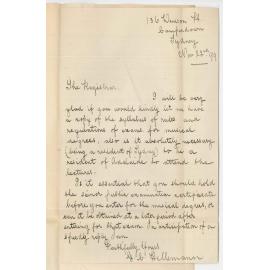 136 Wilson St
Camperdown
Sydney
Nov 22nd /99
The Registrar.
I will be very
glad if you would kindly let me have
a copy of the syllabus of rules and
regulations of exams for musical
degrees, also is it absolutely necessary
(being a resident of Sydney) to be a
resident of Adelaide to attend the
lectures.
Is it essential that you should hold
the senior public examination certificate
before you enter for the musical degree, or
can it be obtained at a later period after
entering for that exam. In anticipation of a
speedy reply I am
Faithfully Yours